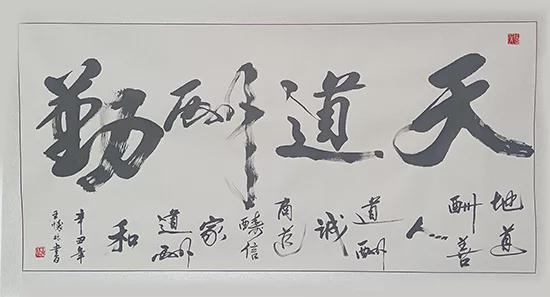 天道酬勤
地道
酬善
人
道酬
诚
商道
酬信
家
道酬
和
辛丑年
書